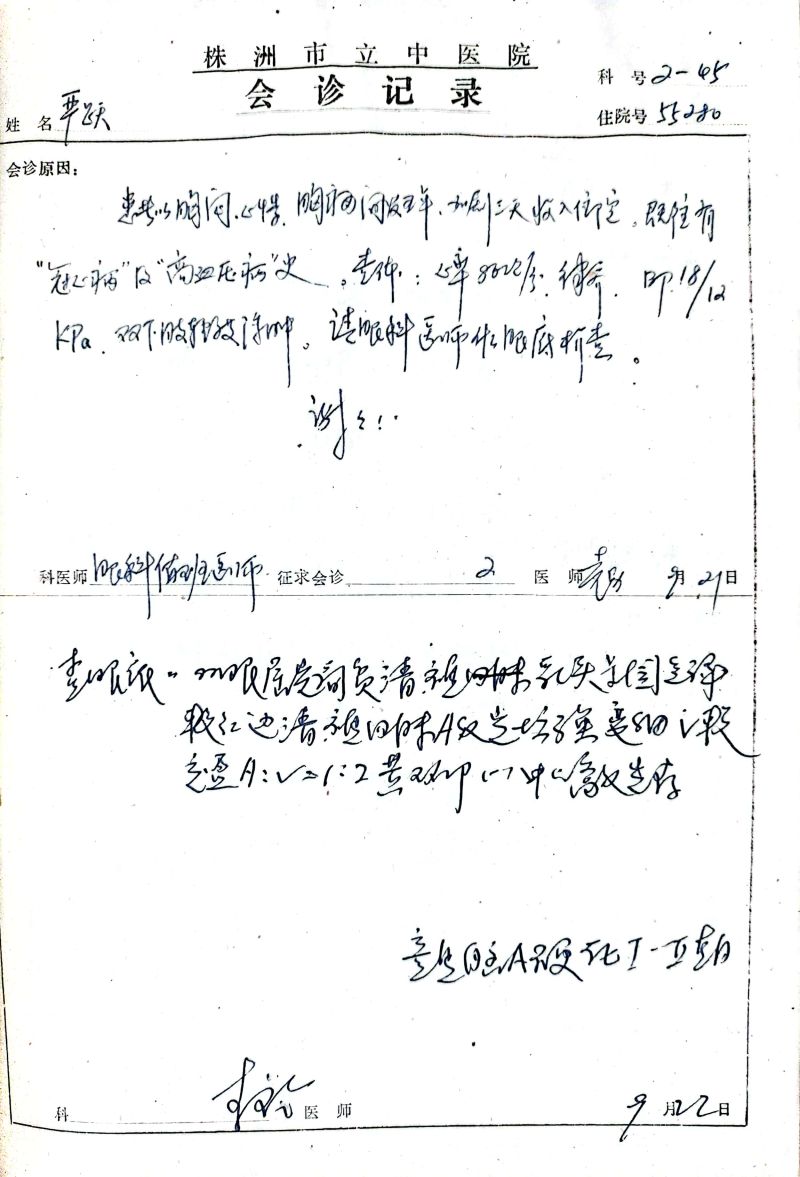 株洲市立中医院
会诊记录
科号 2-45
姓名 严跃
住院号 55280
会诊原因：
患者以胸闷、心悸、胸痛间发五年，加剧三天收入住院。既往有
“冠心病”及“高血压病”史。查体：心率86次/分，律齐，BP 18/12
KPa，双下肢轻度浮肿。请眼科医师作眼底检查。
谢谢！
科医师 眼科值班医师 征求会诊 2 医师 9月21日
查眼底：双眼屈光间质清 乳头
较红 边清 A 反光增强 变细 V较
充盈 A:V=1:2 黄斑部(-) 中心凹反光存
A硬化 I-II期
科 医师 9月22日